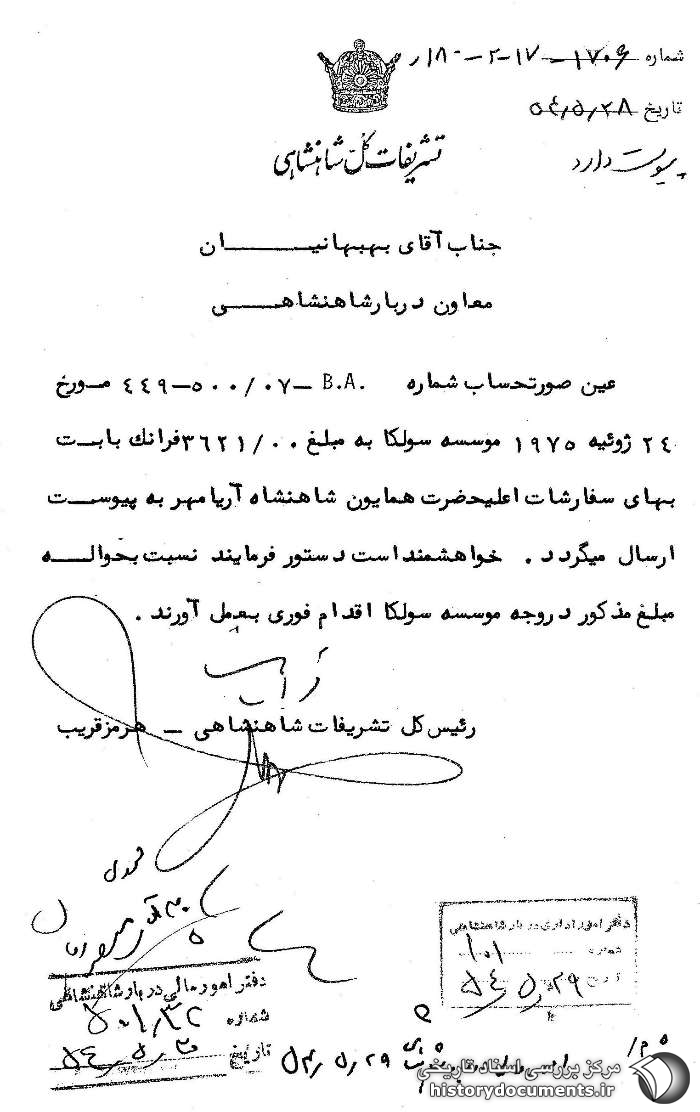 شماره ۱۷۰۶-۱۷-۲-۱۸۰ر
تاریخ ۵٤٫۵٫۲۸
تشریفات کل شاهنشاهی
پیوست دارد
جناب آقای بهبهانیـــــان
معاون دربارشاهنشاهـــی
عین صورتحساب شماره B.A. ‎–٤٤٩–٥٠٠/٠٧ مـورخ
۲٤ ژوئیه ۱۹۷۵ موسسه سولکا به مبلغ ۳٦۲۱/۰۰ فرانك بابـت
بهای سفارشات اعلیحضرت همایون شاهنشاه آریامهر به پیوسـت
ارسال میگردد . خواهشمنداست دستور فرمایند نسبت بحوالـه
مبلغ مذکور دروجه موسسه سولکا اقدام فوری بعمل آورند .
رئیس کل تشریفات شاهنشاهی – هرمزقریب
دفتر امور اداری دربار شاهنشاهی
شماره ۱۰۱
تاریخ ۵٤٫۵٫۲۹
دفتر امور مالی دربار شاهنشاهی
شماره
تاریخ ۵٤٫۵٫۳۰
۵٤٫۵٫۲۹
مرکز بررسی اسناد تاریخی
historydocuments.ir